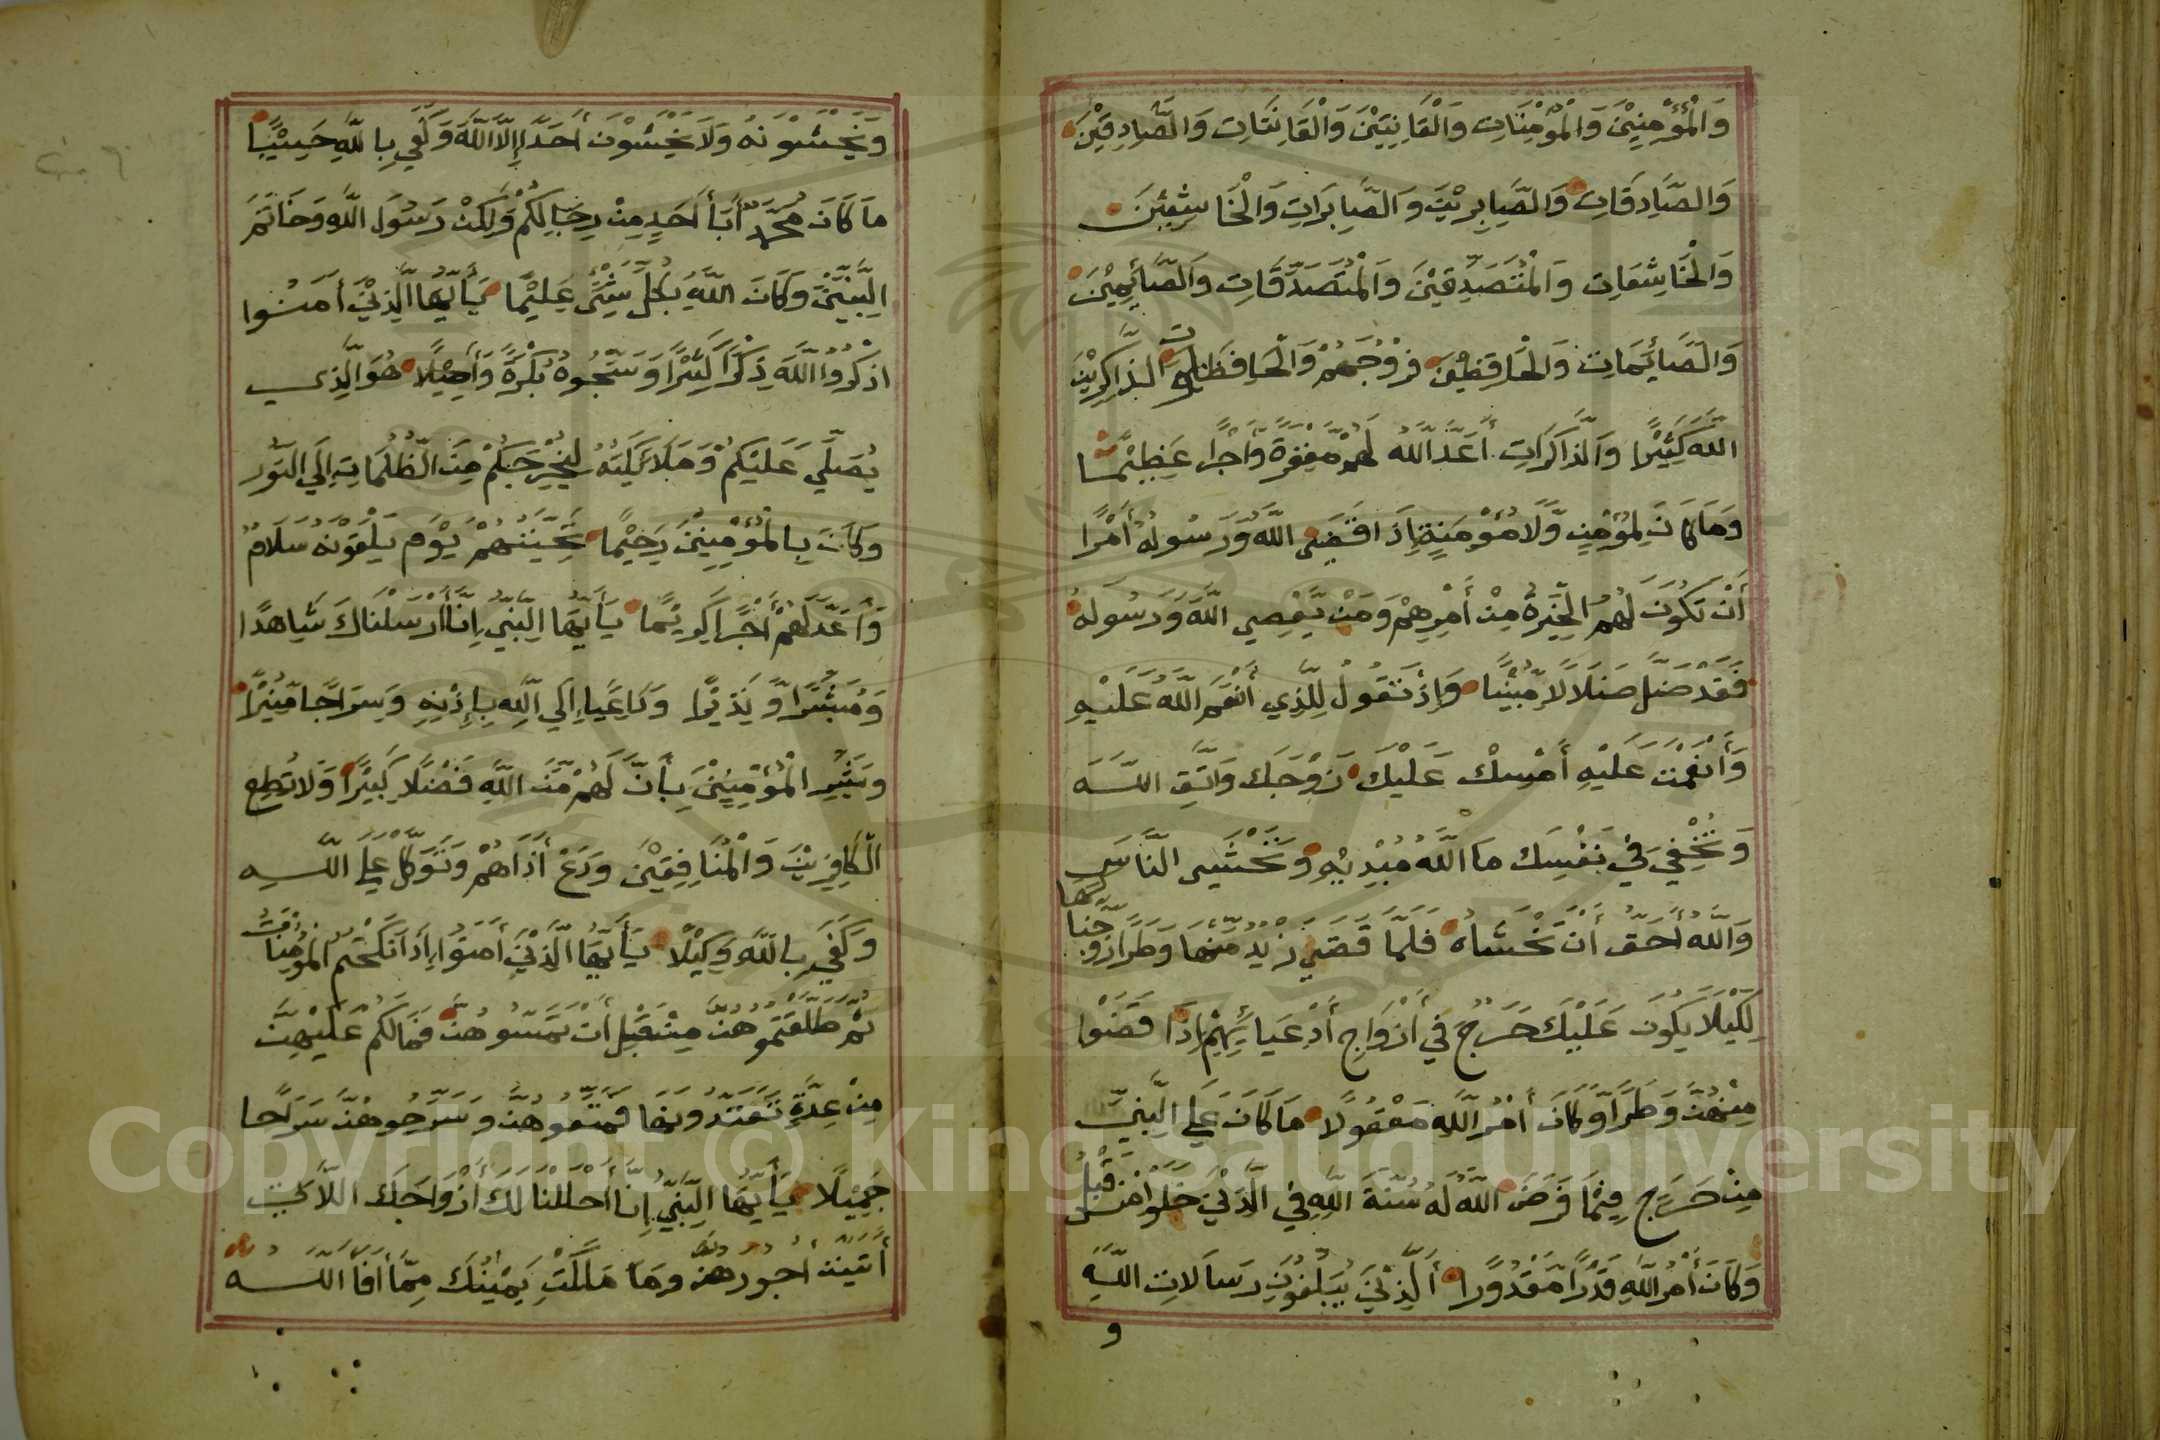 وَالْمُؤْمِنِيْنَ وَالْمُؤْمِنَاتِ وَالْقَانِتِيْنَ وَالْقَانِتَاتِ وَالصَّادِقِيْنَ
وَالصَّادِقَاتِ وَالصَّابِرِيْنَ وَالصَّابِرَاتِ وَالْخَاشِعِيْنَ
وَالْخَاشِعَاتِ وَالْمُتَصَدِّقِيْنَ وَالْمُتَصَدِّقَاتِ وَالصَّائِمِيْنَ
وَالصَّائِمَاتِ وَالْحَافِظِيْنَ فُرُوْجَهُمْ وَالْحَافِظَاتِ وَالذَّاكِرِيْنَ
اللَّهَ كَثِيْرًا وَالذَّاكِرَاتِ أَعَدَّ اللَّهُ لَهُمْ مَّغْفِرَةً وَّأَجْرًا عَظِيْمًا
وَمَا كَانَ لِمُؤْمِنٍ وَّلَا مُؤْمِنَةٍ إِذَا قَضَى اللَّهُ وَرَسُولُهُ أَمْرًا
أَنْ تَكُوْنَ لَهُمُ الْخِيَرَةُ مِنْ أَمْرِهِمْ وَمَنْ يَّعْصِي اللَّهَ وَرَسُولَهُ
فَقَدْ ضَلَّ ضَلَالًا مُّبِيْنًا وَإِذْ تَقُولُ لِلَّذِي أَنْعَمَ اللَّهُ عَلَيْهِ
وَأَنْعَمْتَ عَلَيْهِ أَمْسِكْ عَلَيْكَ زَوْجَكَ وَاتَّقِ اللَّهَ
وَتُخْفِي فِي نَفْسِكَ مَا اللَّهُ مُبْدِيْهِ وَتَخْشَى النَّاسَ
وَاللَّهُ أَحَقُّ أَنْ تَخْشَاهُ فَلَمَّا قَضَى زَيْدٌ مِّنْهَا وَطَرًا زَوَّجْنَاكَهَا
لِكَيْلَا يَكُوْنَ عَلَيْكَ حَرَجٌ فِي أَزْوَاجِ أَدْعِيَائِهِمْ إِذَا قَضَوْا
مِنْهُنَّ وَطَرًا وَّكَانَ أَمْرُ اللَّهِ مَفْعُولًا مَا كَانَ عَلَى النَّبِيِّ
مِنْ حَرَجٍ فِيْمَا فَرَضَ اللَّهُ لَهُ سُنَّةَ اللَّهِ فِي الَّذِيْنَ خَلَوْا مِنْ قَبْلُ
وَكَانَ أَمْرُ اللَّهِ قَدَرًا مَّقْدُوْرًا أَلَّذِيْنَ يُبَلِّغُوْنَ رِسَالَاتِ اللَّهِ
و
وَيَخْشَوْنَهُ وَلَا يَخْشَوْنَ أَحَدًا إِلَّا اللَّهَ وَكَفَى بِاللَّهِ حَسِيْبًا
مَا كَانَ مُحَمَّدٌ أَبَا أَحَدٍ مِنْ رِجَالِكُمْ وَلَكِنْ رَسُوْلَ اللَّهِ وَخَاتَمَ
النَّبِيِّيْنَ وَكَانَ اللَّهُ بِكُلِّ شَيْءٍ عَلِيْمًا يَأَيُّهَا الَّذِيْنَ أَمَنُوا
اذْكُرُوا اللَّهَ ذِكْرًا كَثِيْرًا وَسَبِّحُوهُ بُكْرَةً وَّأَصِيْلًا هُوَ الَّذِي
يُصَلِّي عَلَيْكُمْ وَمَلَائِكَتُهُ لِيُخْرِجَكُمْ مِنَ الظُّلُمَاتِ إِلَى النُّوْرِ
وَكَانَ بِالْمُؤْمِنِيْنَ رَحِيْمًا تَحِيَّتُهُمْ يَوْمَ يَلْقَوْنَهُ سَلَامٌ
وَأَعَدَّ لَهُمْ أَجْرًا كَرِيْمًا يَأَيُّهَا النَّبِيُّ إِنَّا أَرْسَلْنَاكَ شَاهِدًا
وَمُبَشِّرًا وَّنَذِيْرًا وَدَاعِيًا إِلَى اللَّهِ بِإِذْنِهِ وَسِرَاجًا مُنِيْرًا
وَبَشِّرِ الْمُؤْمِنِيْنَ بِأَنَّ لَهُمْ مِّنَ اللَّهِ فَضْلًا كَبِيْرًا وَلَا تُطِعِ
الْكَافِرِيْنَ وَالْمُنَافِقِيْنَ وَدَعْ أَذَاهُمْ وَتَوَكَّلْ عَلَى اللَّهِ
وَكَفَى بِاللَّهِ وَكِيْلًا يَأَيُّهَا الَّذِيْنَ أَمَنُوا إِذَا نَكَحْتُمُ الْمُؤْمِنَاتِ
ثُمَّ طَلَّقْتُمُوْهُنَّ مِنْ قَبْلِ أَنْ تَمَسُّوْهُنَّ فَمَا لَكُمْ عَلَيْهِنَّ
مِنْ عِدَّةٍ تَعْتَدُّوْنَهَا فَمَتِّعُوْهُنَّ وَسَرِّحُوْهُنَّ سَرَاحًا
جَمِيْلًا يَأَيُّهَا النَّبِيُّ إِنَّا أَحْلَلْنَا لَكَ أَزْوَاجَكَ اللَّاتِي
أَتَيْتَ أُجُوْرَهُنَّ وَمَا مَلَكَتْ يَمِيْنُكَ مِمَّا أَفَاءَ اللَّهُ
Copyright © King Saud University